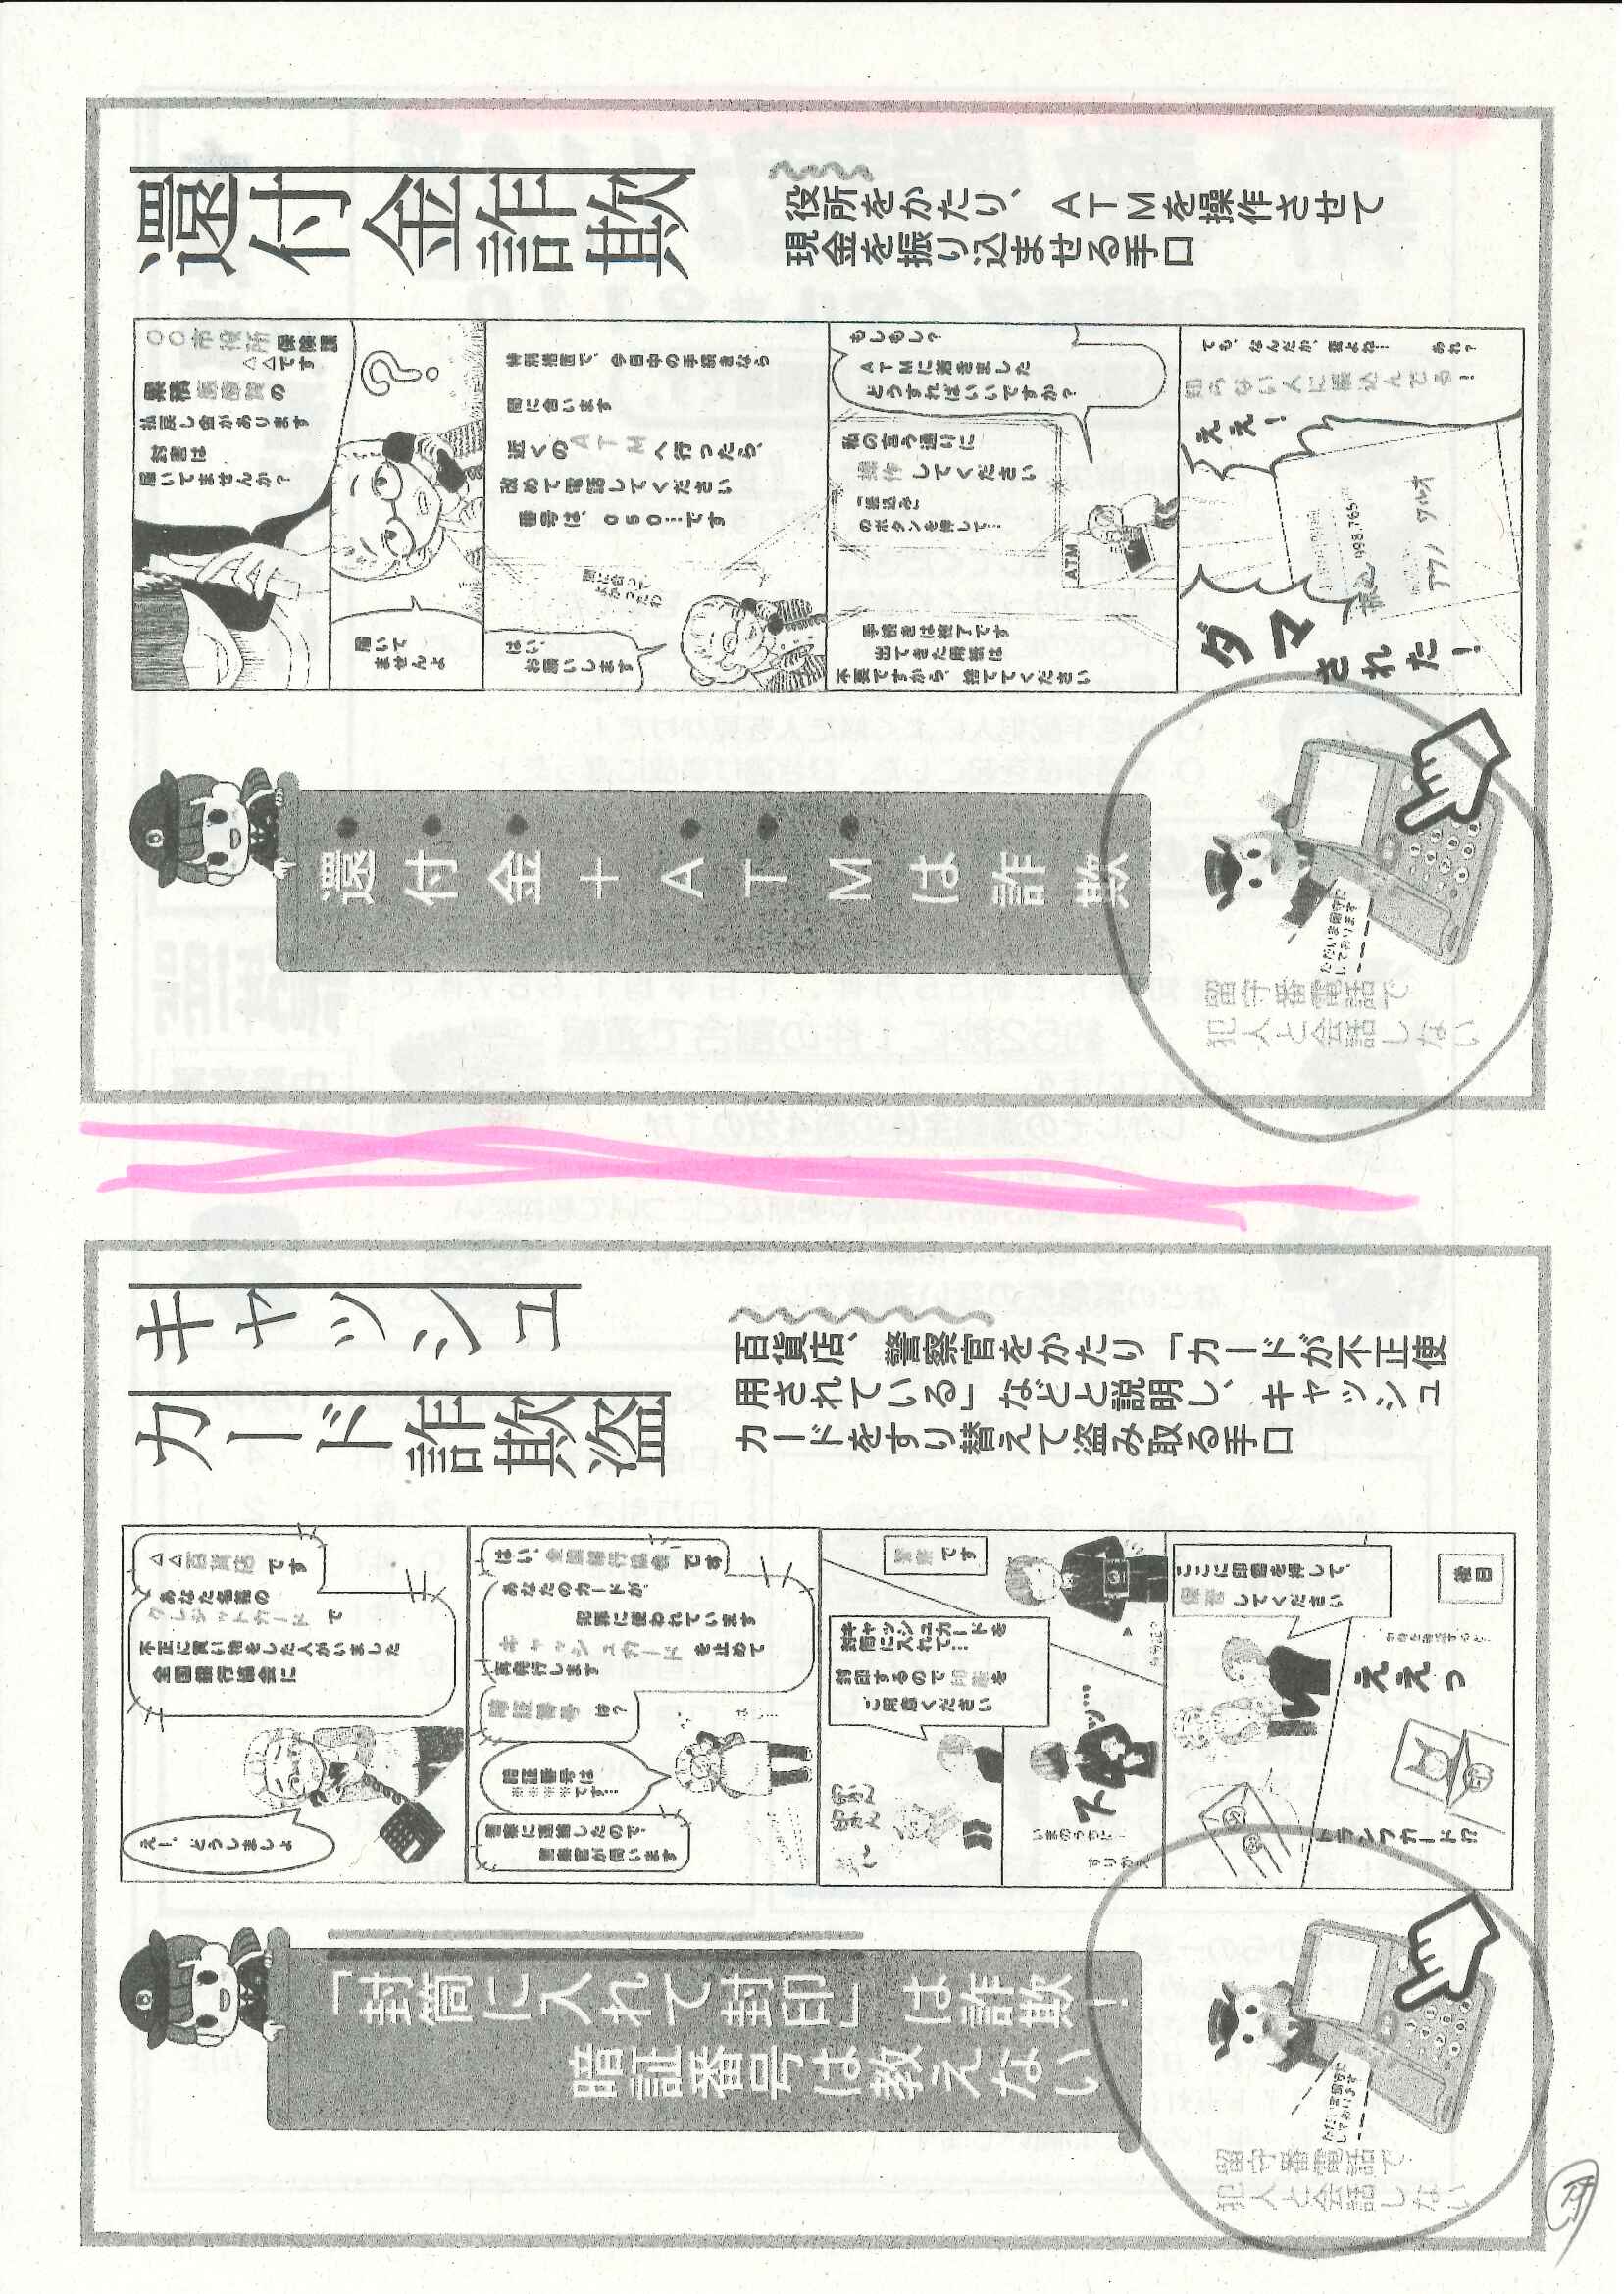 還付金詐欺
役所をかたり、ATMを操作させて
現金を振り込ませる手口
〇〇市役所 保険課
△△です
累積医療費の
払戻し金があります
封書は
届いてませんか？
届いて
ませんよ
特別措置で、今日中の手続きなら
間に合います
近くのATMへ行ったら、
改めて電話してください
番号は、050…です
間に合って
よかったわ
はい、
お願いします
もしもし？
ATMに着きました
どうすればいいですか？
私の言う通りに
操作してください
「振込み」
のボタンを押して…
ATM
手続きは終了です
出てきた用紙は
不要ですから、捨ててください
あれ？
でも、なんだか、変よね…
知らない人に振込んでる！
ええ！
振込 998,765
アクノ ワルオ
ダマ
された！
還付金＋ATMは詐欺
ただいま留守に
しております
留守番電話で
犯人と会話しない
キャッシュ
カード詐欺盗
百貨店、警察官をかたり「カードが不正使
用されている」などと説明し、キャッシュ
カードをすり替えて盗み取る手口
△△百貨店です
あなた名義の
クレジットカードで
不正に買い物をした人がいました
全国銀行協会に
えー、どうしましょ
はい、全国銀行協会です
あなたのカードが、
犯罪に使われています
キャッシュカードを止めて
再発行します
暗証番号は？
暗証番号は
※※※※です…
警察に連絡したので、
警察官が伺います
警察です
キャッシュカードを
封筒に入れて…
封印するので印鑑を
ご用意ください
いまのうちに！
すりかえ
スッ…
ここに印鑑を押して、
保管してください
後日
ええっ
トランプカード!?
「封筒に入れて封印」は詐欺！
暗証番号は教えない
ただいま留守に
しております
留守番電話で
犯人と会話しない